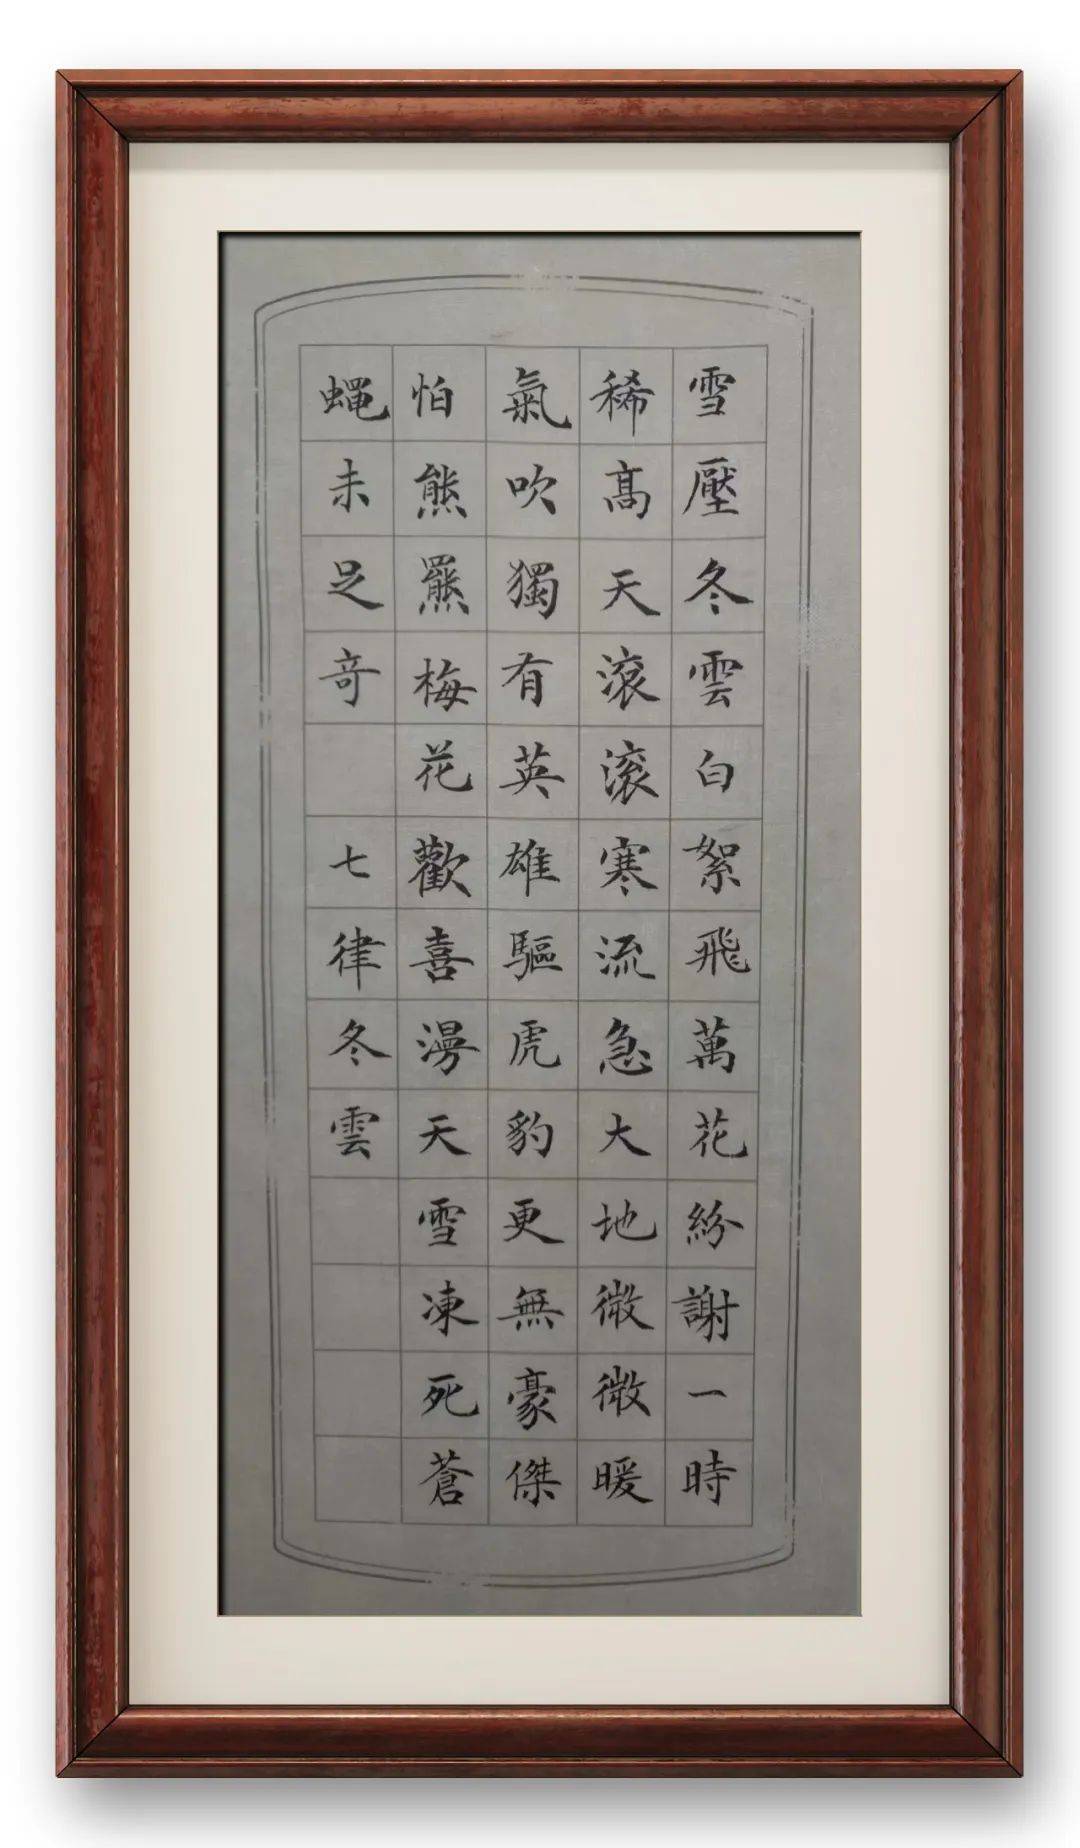 雪壓冬雲白絮飛萬花紛謝一時
稀髙天滾滾寒流急大地微微暖
氣吹獨有英雄驅虎豹更無豪傑
怕熊羆梅花歡喜漫天雪凍死蒼
蝿未足奇 七律冬雲